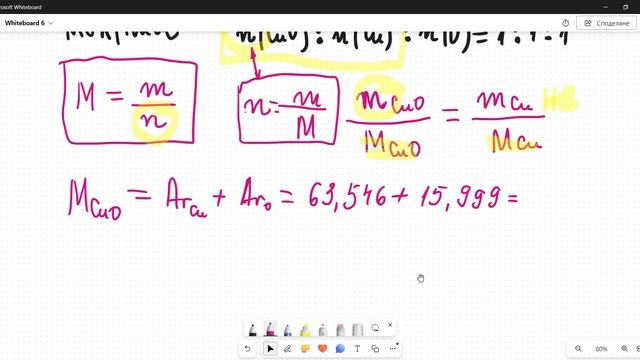 Microsoft Whiteboard
Whiteboard 6
Споделяне
n(CuO) : n(Cu) : n(O) = 1 : 1 : 1
M = m/n
n = m/M
mCuO/MCuO = mCu/MCu
MCuO = ArCu + ArO = 63,546 + 15,999 =
80%